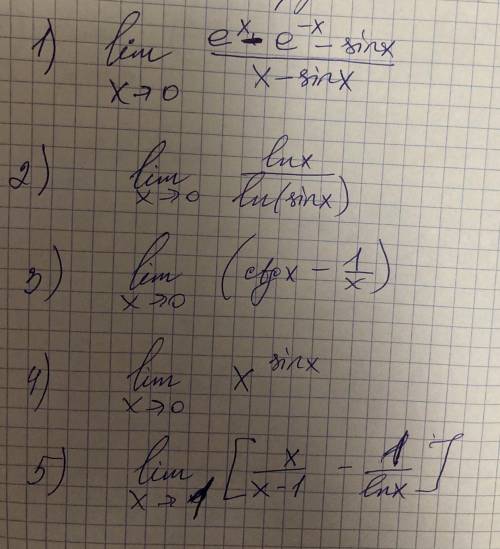 1) lim x→0 (e^x - e^-x - sinx)/(x - sinx)
2) lim x→0 lnx/ln(sinx)
3) lim x→0 (ctgx - 1/x)
4) lim x→0 x^sinx
5) lim x→1 [x/(x-1) - 1/lnx]